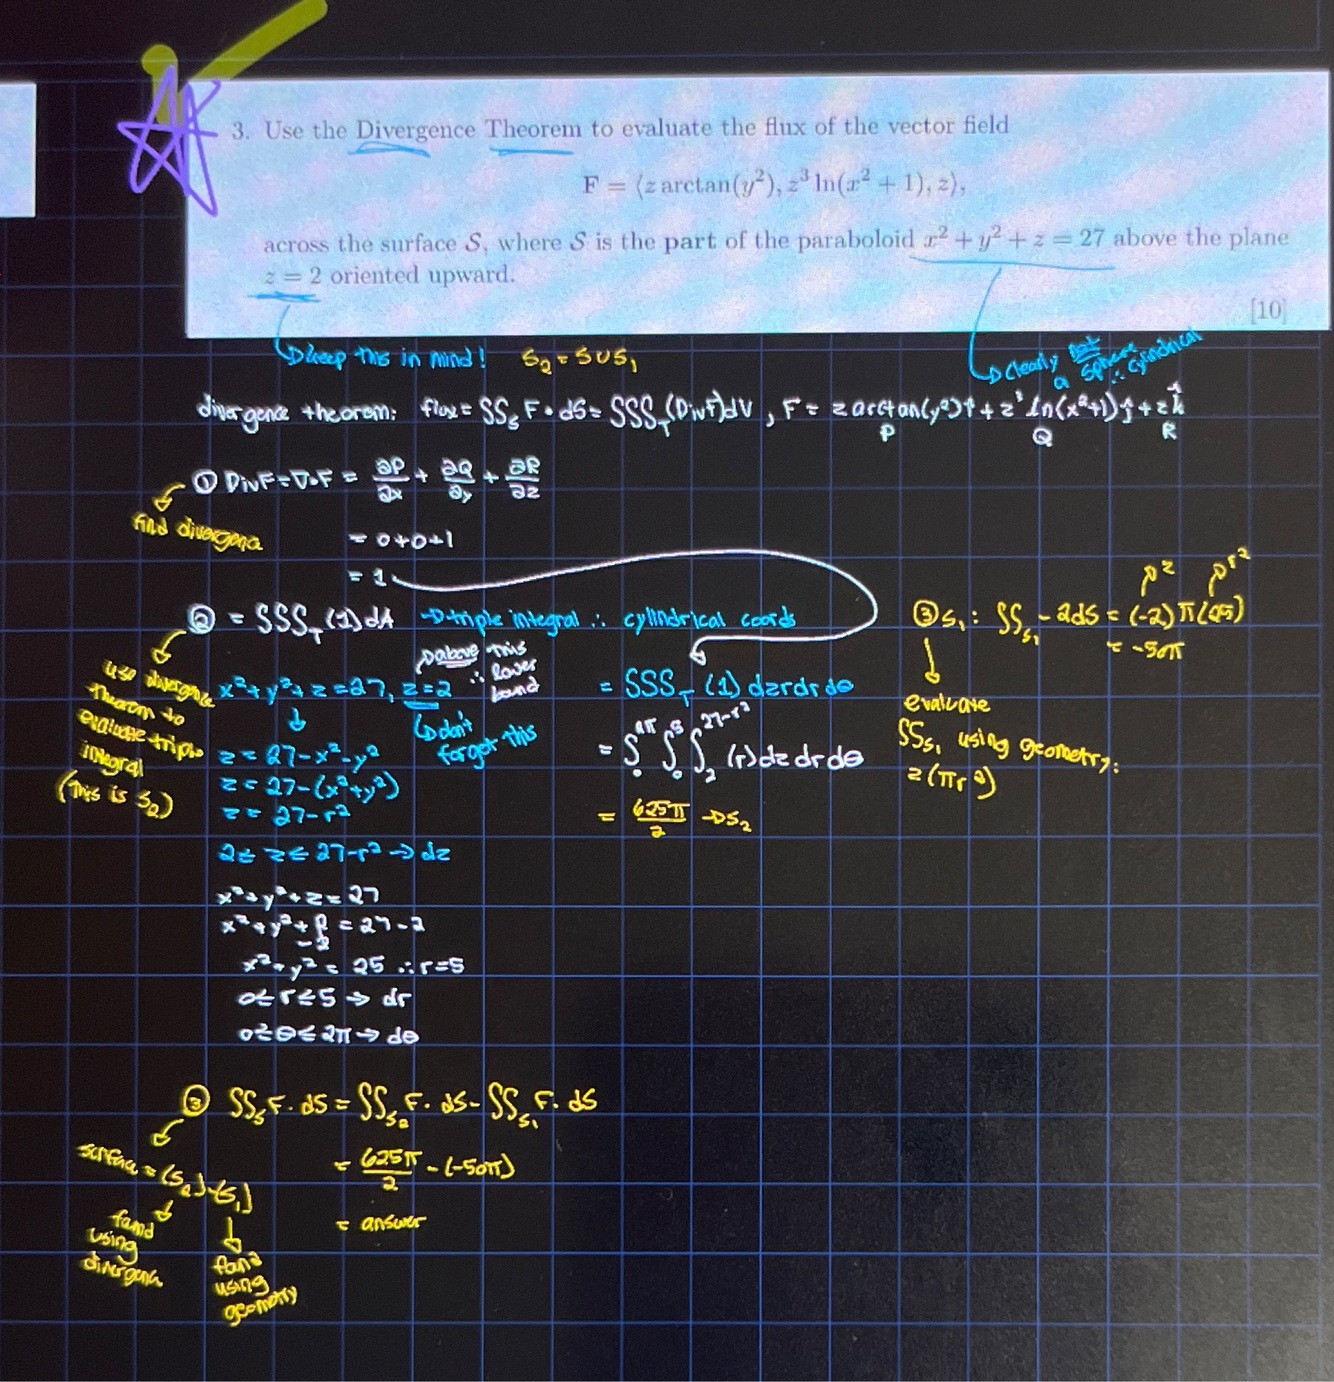 3. Use the Divergence Theorem to evaluate the flux of the vector field
F = ⟨z arctan(y²), z³ ln(x² + 1), z⟩,
across the surface S, where S is the part of the paraboloid x² + y² + z = 27 above the plane
z = 2 oriented upward.
[10]
↳ keep this in mind!
S₂ = S∪S₁
↳ clearly not a sphere ∴ cylindrical
divergence theorem: flux = SS_S F · dS = SSS_T (Div F) dV , F = z arctan(y²) î + z³ ln(x²+1) ĵ + z k̂
P Q R
① Div F = ∇·F = ∂P/∂x + ∂Q/∂y + ∂R/∂z
find divergence
= 0+0+1
= 1
② = SSS_T (1) dA → triple integral ∴ cylindrical coords
use divergence theorem to evaluate triple integral (this is S₂)
x²+y²+z = 27, z = 2
above this ∴ lower bound
↳ don't forget this
z = 27-x²-y²
z = 27-(x²+y²)
z = 27-r²
2 ≤ z ≤ 27-r² → dz
x²+y²+z = 27
x²+y²+2 = 27-2
-2
x²+y² = 25 ∴ r=5
0 ≤ r ≤ 5 → dr
0 ≤ θ ≤ 2π → dθ
= SSS_T (1) dz r dr dθ
= ∫₀^2π ∫₀^5 ∫₂^27-r² (r) dz dr dθ
= 625π/2 → S₂
③ S₁: SS_S₁ -2dS = (-2) π (25)
z r²
= -50π
evaluate
SS_S₁ using geometry:
z(πr²)
③ SS_S F · dS = SS_S₂ F · dS - SS_S₁ F · dS
surface = (S₂)-(S₁)
= 625π/2 - (-50π)
= answer
found using divergence
found using geometry